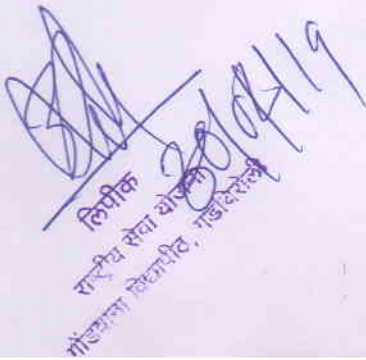 लिपीक
राष्ट्रीय सेवा योजना
गोंडवाना विद्यापीठ, गडचिरोली